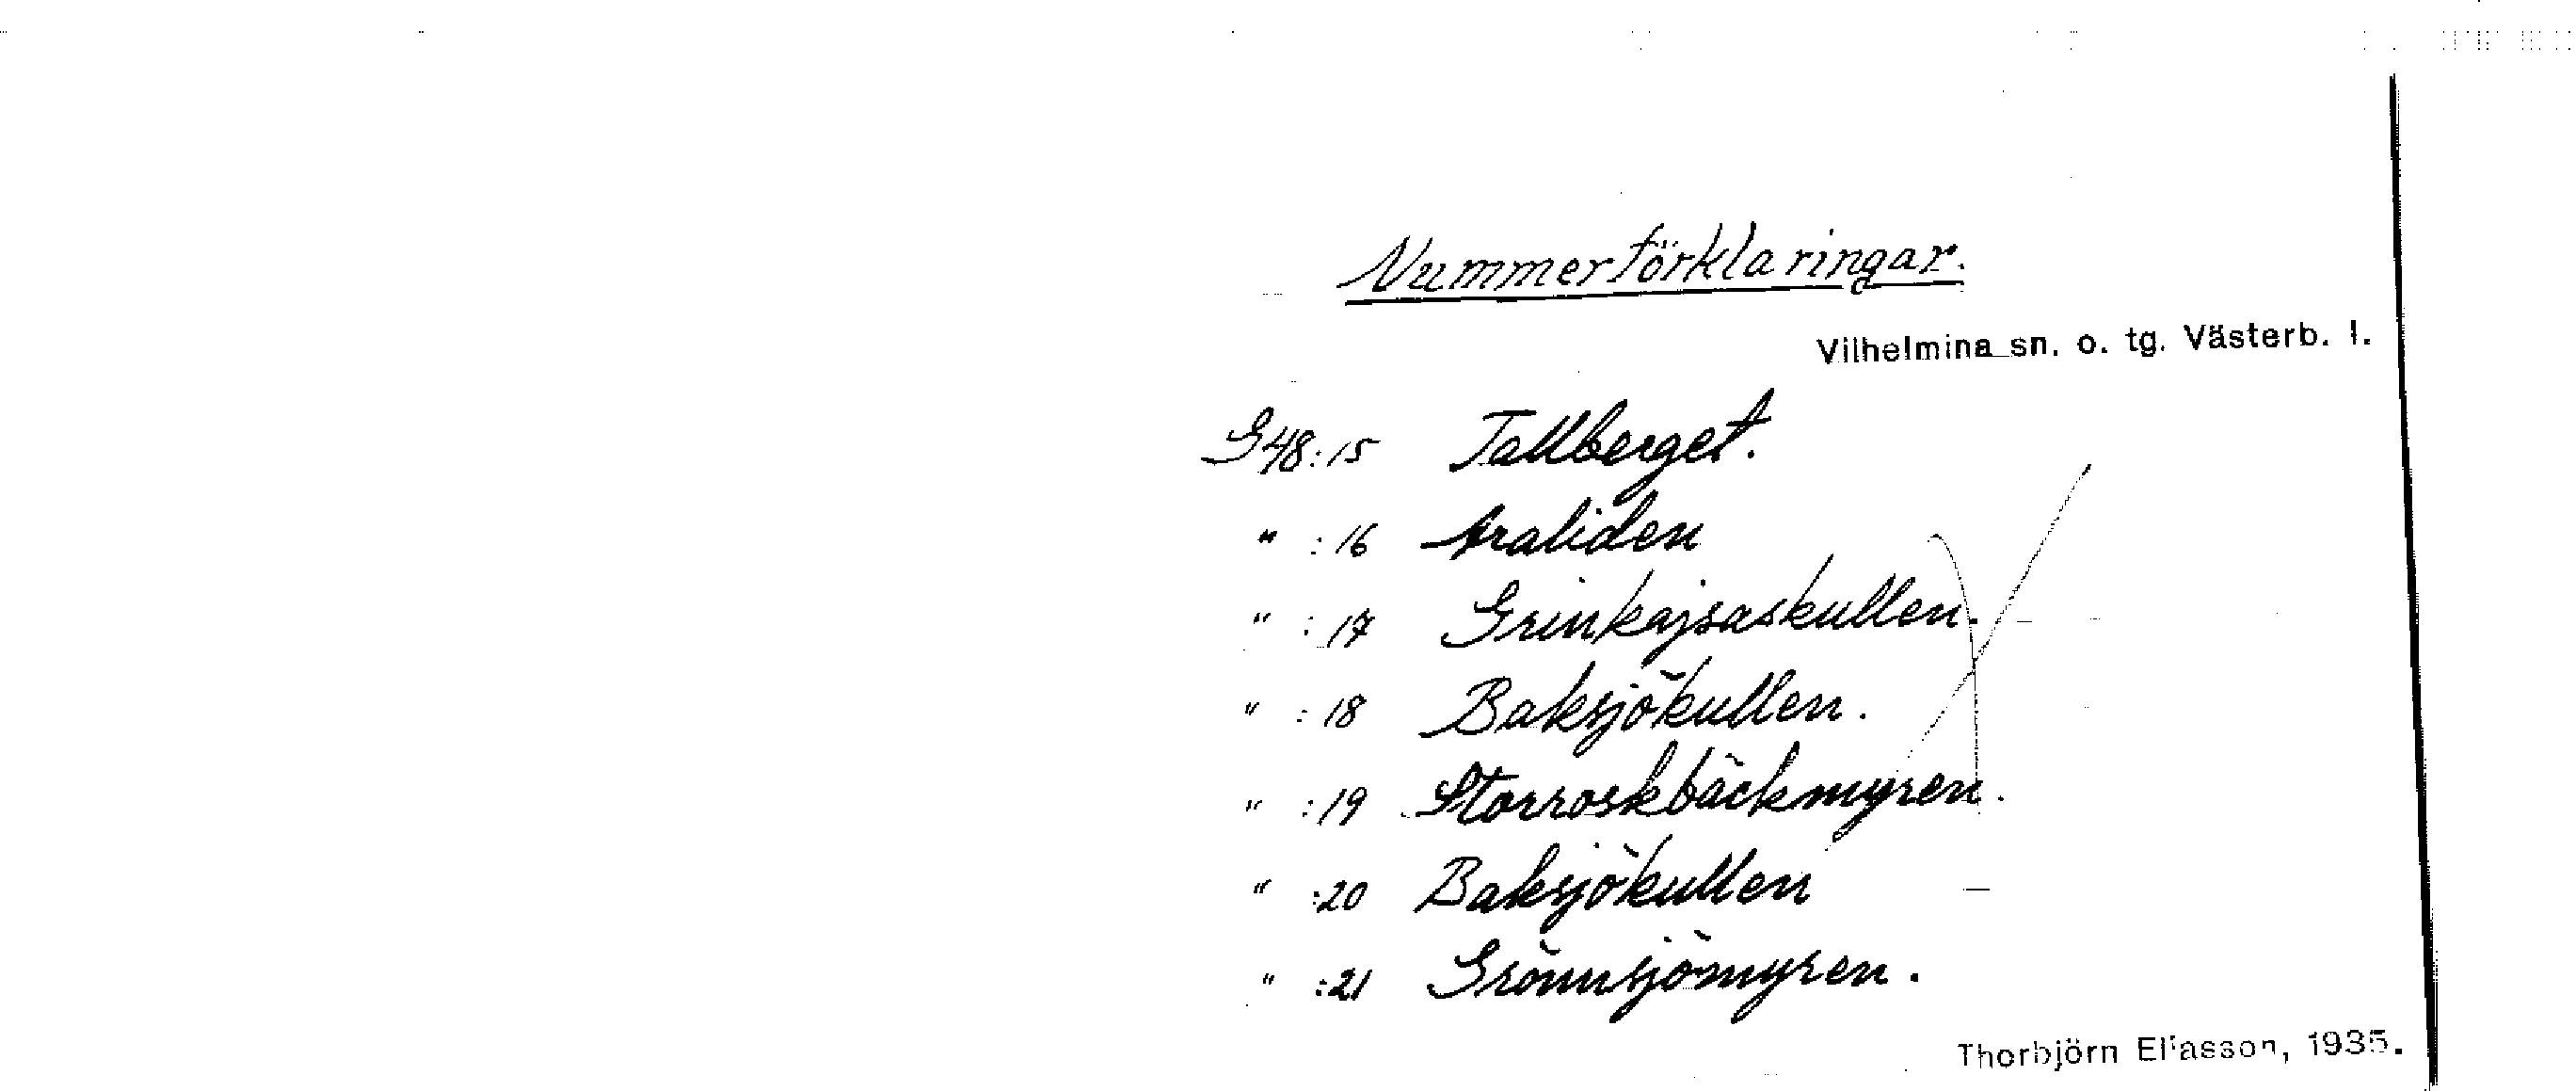 Nummerförklaringar.
Vilhelmina sn. o. tg. Västerb. l.
G48:15 Tallberget.
" :16 Araliden
" :17 Grinkajsaskullen.
" :18 Baksjökullen.
" :19 Storroskbäckmyren.
" :20 Baksjökullen
" :21 Grönnsjömyren.
Thorbjörn Eliasson, 1935.